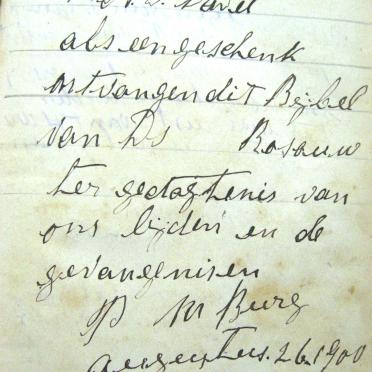 als een geschenk
ontvangen dit Bijbel
van Ds Rosauw
ter gedagtenis van
ons lijden en de
gevangenisen
P M Burg
augustus. 26. 1900